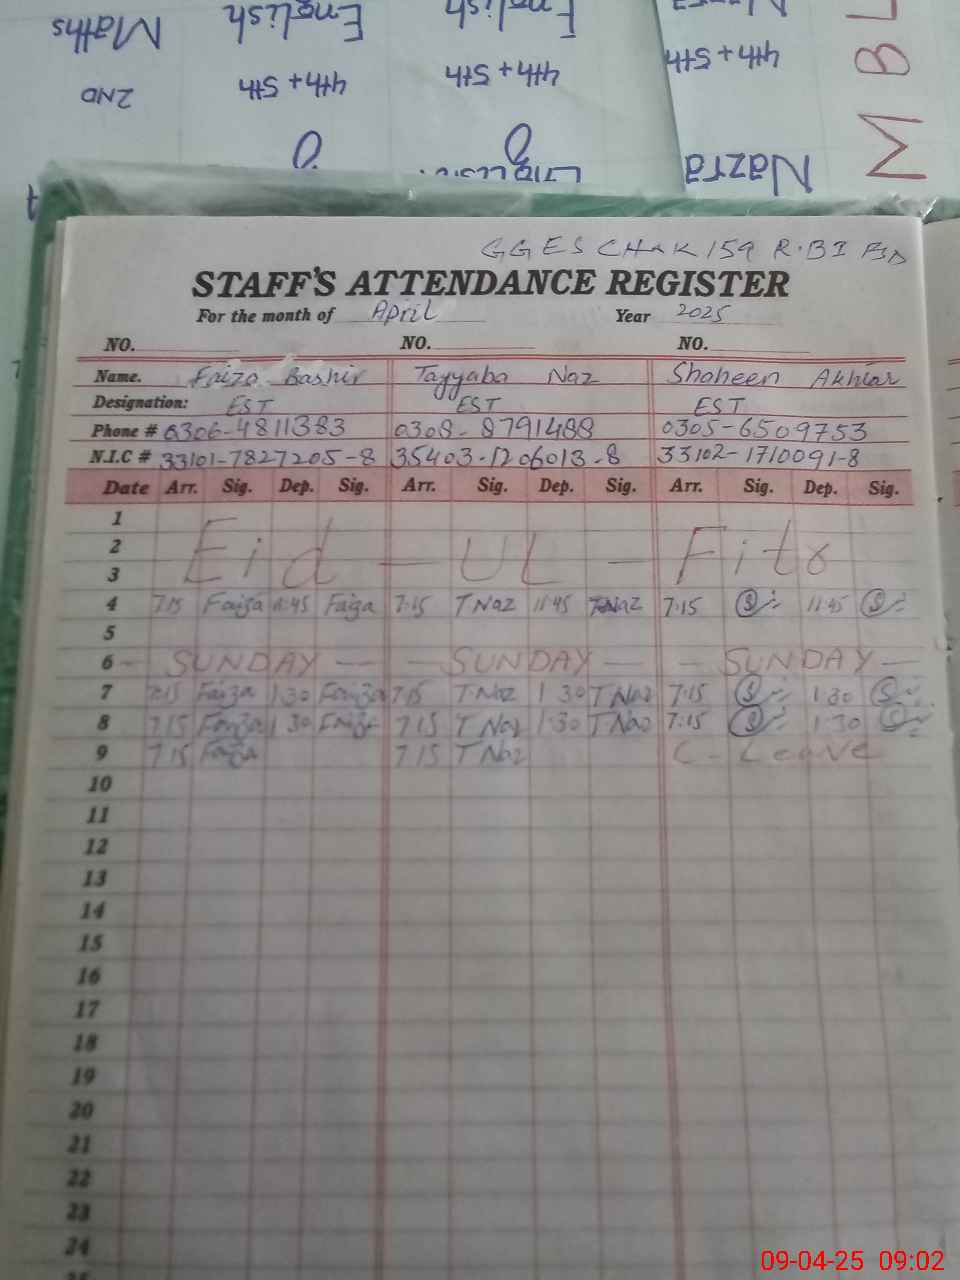 Maths English English
2ND 4th + 5th 4th + 5th 4th + 5th
Nazra
M B L
GGES CHAK 159 R.B I
STAFF'S ATTENDANCE REGISTER
For the month of April Year 2025
NO. NO. NO.
Name. Faiza Bashir Tayyaba Naz Shaheen Akhtar
Designation: EST EST EST
Phone # 0306-4811383 0308-8791488 0305-6509753
N.I.C # 33101-7827205-8 35403-1206013-8 33102-1710091-8
Date Arr. Sig. Dep. Sig. Arr. Sig. Dep. Sig. Arr. Sig. Dep. Sig.
1
2 Eid - UL - Fitr
3
4 7:15 Faiza 11:45 Faiza 7:15 T Naz 11:45 T Naz 7:15 S 11:45 S
5
6 - SUNDAY - - SUNDAY - - SUNDAY -
7 7:15 Faiza 1:30 Faiza 7:15 T.Naz 1:30 T Naz 7:15 S 1:30 S
8 7:15 Faiza 1:30 Faiza 7:15 T Naz 1:30 T Naz 7:15 S 1:30 S
9 7:15 Faiza 7:15 T Naz C - Leave
10
11
12
13
14
15
16
17
18
19
20
21
22
23
24
09-04-25 09:02